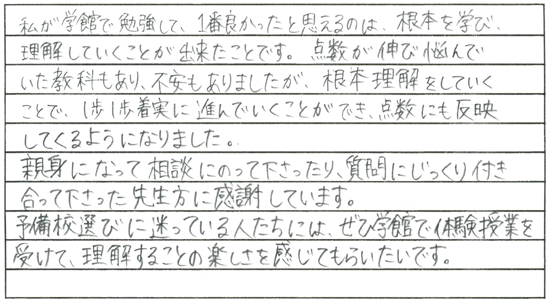 私が学館で勉強して、1番良かったと思えるのは、根本を学び、
理解していくことが出来たことです。点数が伸び悩んで
いた教科もあり、不安もありましたが、根本理解をしていく
ことで、1歩1歩着実に進んでいくことができ、点数にも反映
してくるようになりました。
親身になって相談にのって下さったり、質問にじっくり付き
合って下さった先生方に感謝しています。
予備校選びに迷っている人たちには、ぜひ学館で体験授業を
受けて、理解することの楽しさを感じてもらいたいです。